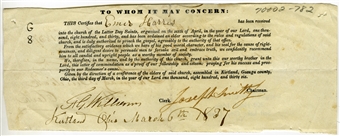 TO WHOM IT MAY CONCERN:
70002-782
G
8
THIS Certifies that Emer Harris has been received
into the church of the Latter Day Saints, organized on the sixth of April, in the year of our Lord, one thousand, eight hundred, and thirty, and has been ordained an elder according to the rules and regulations of said church, and is duly authorized to preach the gospel, agreeably to the authority of that office.
From the satisfactory evidence which we have of his good moral character, and his zeal for the cause of righteousness, and diligent desire to persuade men to forsake evil and embrace truth, we confidently recommend him to all candid and upright people as a worthy member of society.
We, therefore, in the name, and by the authority of this church, grant unto this our worthy brother in the Lord, this letter of commendation as a proof of our fellowship and esteem: praying for his success and prosperity in our Redeemer's cause.
Given by the direction of a conference of the elders of said church, assembled in Kirtland, Geauga county, Ohio, the third day of March, in the year of our Lord, one thousand, eight hundred, and thirty six.
F. G. Williams Clerk. Joseph Smith Chairman.
Kirtland Ohio March 6th 1837